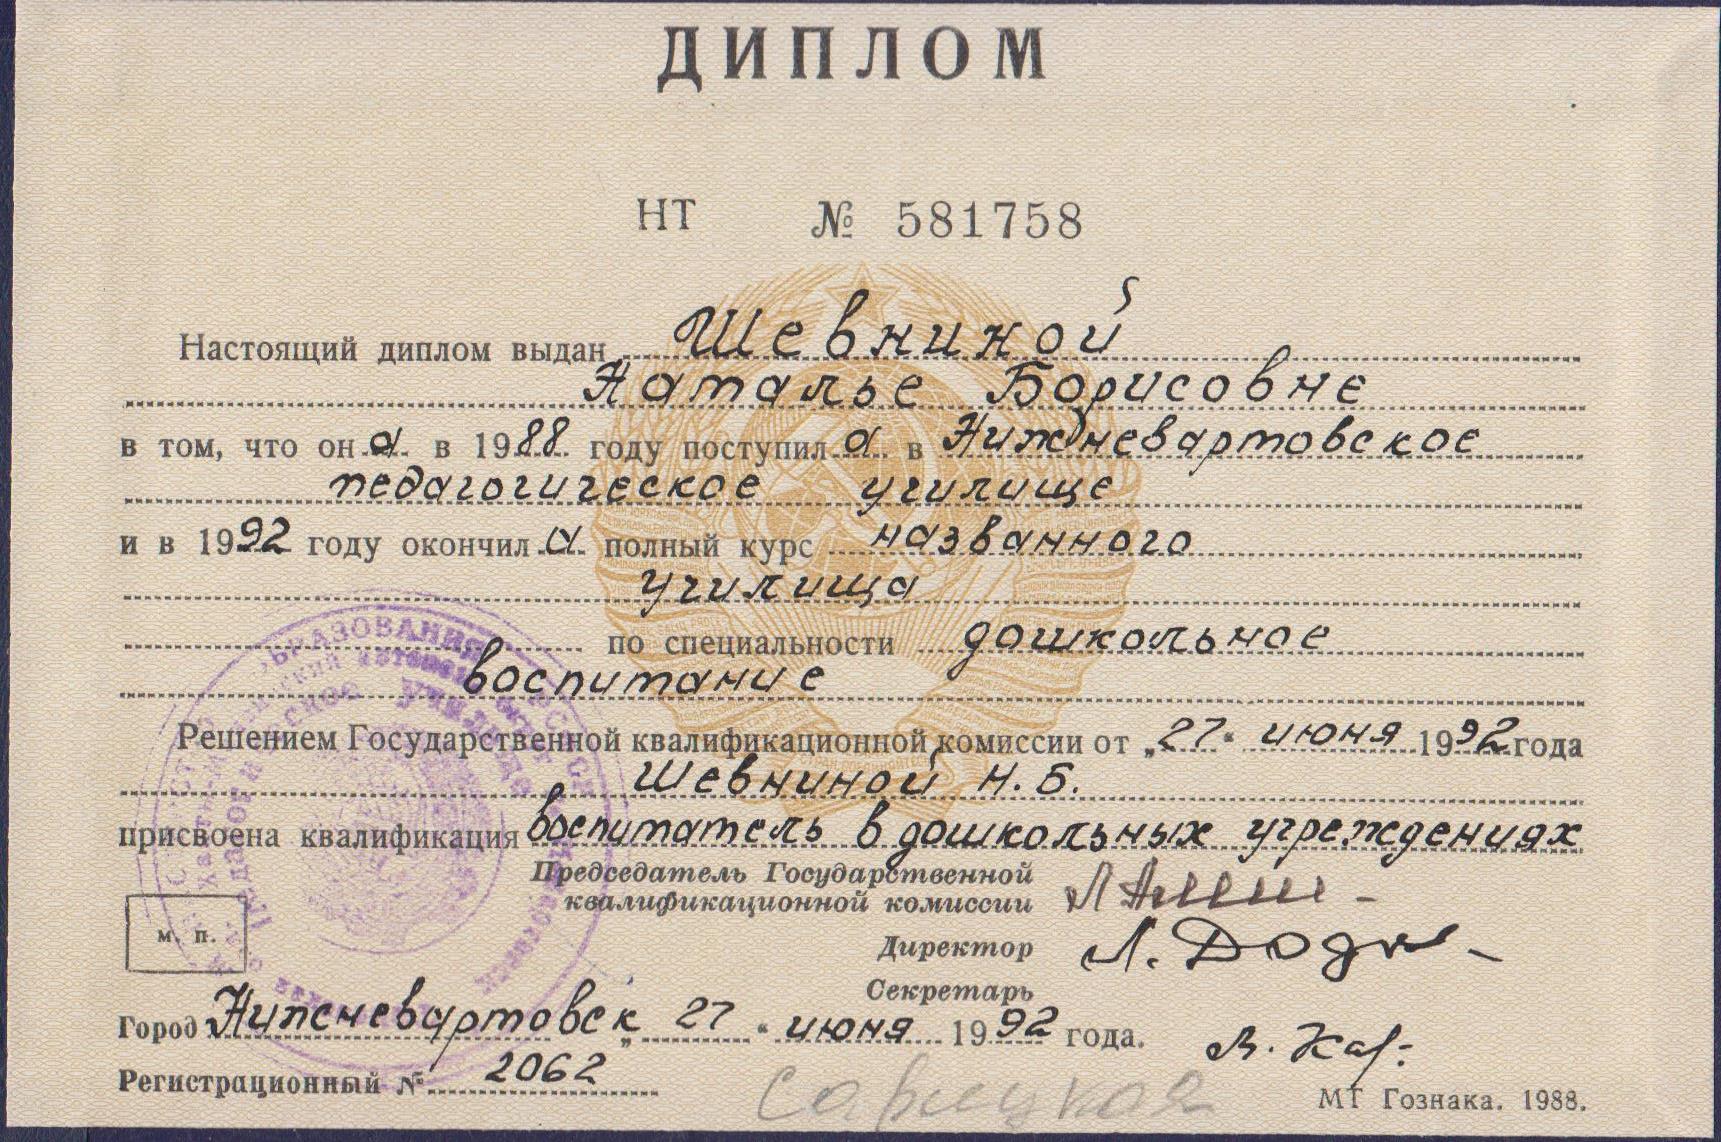 ДИПЛОМ
НТ № 581758
Настоящий диплом выдан Шевниной
Наталье Борисовне
в том, что он а в 1988 году поступил а в Нижневартовское
педагогическое училище
и в 1992 году окончил а полный курс названного
училища
по специальности дошкольное
воспитание
Решением Государственной квалификационной комиссии от „27“ июня 1992 года
Шевниной Н.Б.
присвоена квалификация воспитатель в дошкольных учреждениях
Председатель Государственной
квалификационной комиссии
Директор
Секретарь
м. п.
Город Нижневартовск „27“ июня 1992 года.
Регистрационный № 2062
МТ Гознака. 1988.